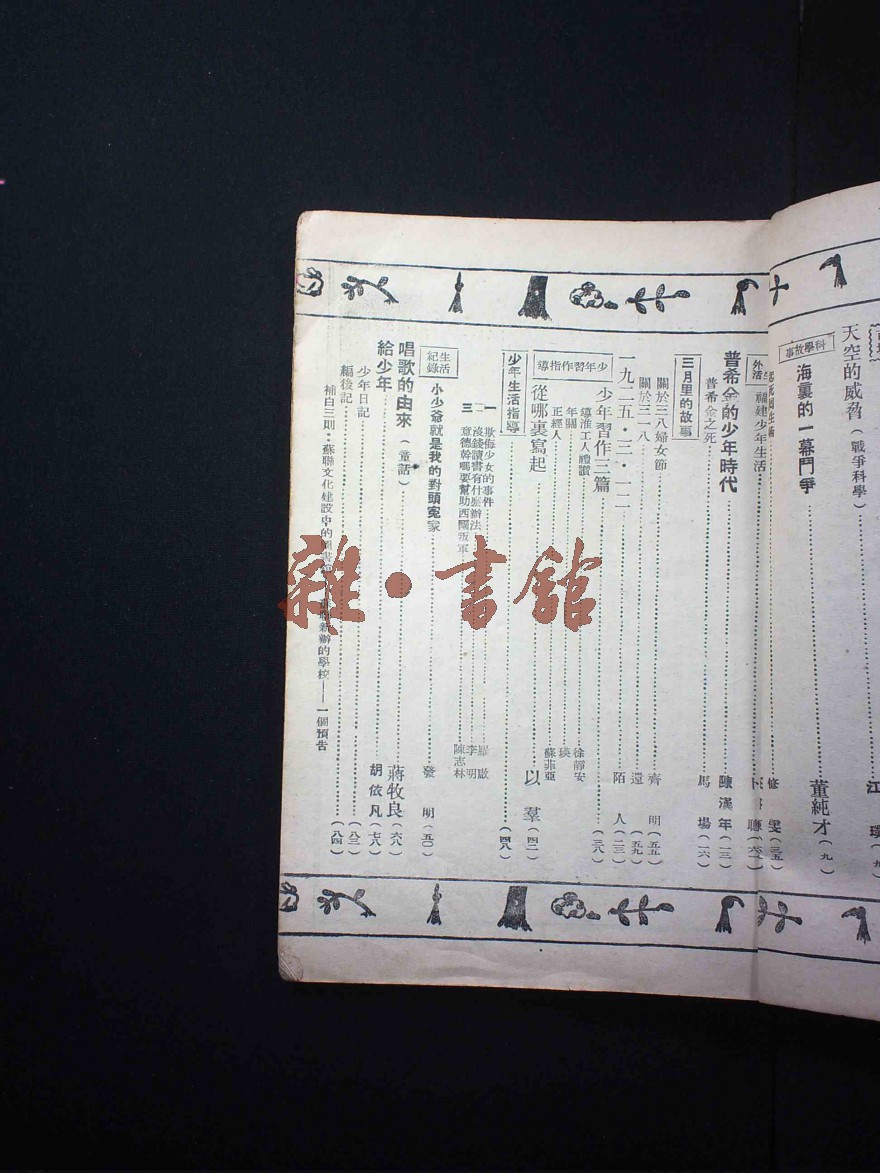 天空的威脅（戰爭科學）
江
科學故事
海裏的一幕鬥爭
董純才（九）
修
外
活
福建少年生活
普希金的少年時代
陳漢年（一三）
普希金之死
馬場（一六）
三月里的故事
關於三八婦女節
齊明（五五）
關於三一八
還（五九）
一九二五・三・一二
陌人（二三）
少年習作三篇
（三八）
導淮工人禮讚
徐靜安
年關
瑛
正經人
蘇菲亞
少年習作指導
從哪裏寫起
以羣（四二）
少年生活指導
（四八）
一 欺侮少女的事件
二 沒錢讀書有什麽辦法
李明
三 意德幹嗎要幫助西國叛軍
陳志林
生活紀錄
小少爺就是我的對頭冤家
發明（五〇）
唱歌的由來（童話）
蔣牧良（六八）
給少年
胡依凡（七八）
少年日記
（八三）
編後記
（八四）
補白三則：蘇聯文化建設中的
辦的學校——一個預告
雜・書館